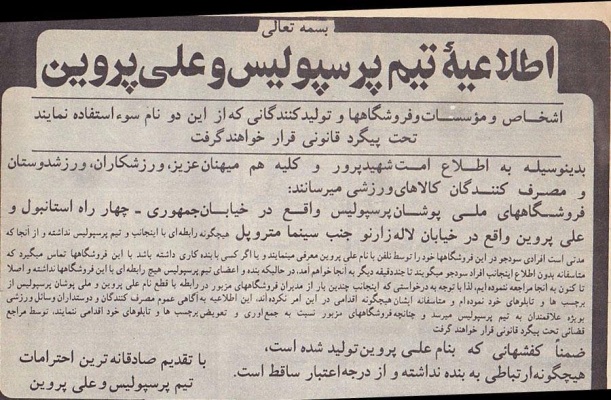 بسمه تعالی
اطلاعیهٔ تیم پرسپولیس و علی پروین
اشخاص و مؤسسات و فروشگاهها و تولیدکنندگانی که از این دو نام سوءاستفاده نمایند
تحت پیگرد قانونی قرار خواهند گرفت
بدینوسیله به اطلاع امت شهیدپرور و کلیه هم میهنان عزیز، ورزشکاران، ورزشدوستان
و مصرف کنندگان کالاهای ورزشی میرسانند:
فروشگاههای ملی پوشان پرسپولیس واقع در خیابان جمهوری - چهار راه استانبول و
علی پروین واقع در خیابان لاله زارنو جنب سینما متروپل هیچگونه رابطه‌ای با اینجانب و تیم پرسپولیس نداشته و از آنجا که
مدتی است افرادی سودجو در این فروشگاهها خود را توسط تلفن با نام علی پروین معرفی مینمایند و یا اگر کسی با بنده کاری داشته باشد با این فروشگاهها تماس میگیرد که
متاسفانه بدون اطلاع اینجانب افراد سودجو میگویند تا چند دقیقه دیگر به آنجا خواهم آمد، در حالیکه بنده و اعضای تیم پرسپولیس هیچ رابطه‌ای با این فروشگاهها نداشته و اصلا
تا کنون به آنجا مراجعه نموده‌ایم، لذا با توجه به درخواستی که اینجانب چندین بار از مدیران فروشگاههای مزبور در رابطه با قطع نام علی پروین و ملی پوشان پرسپولیس از
برچسب ها و تابلوهای خود نموده‌ام و متاسفانه ایشان هیچگونه اقدامی در این امر نکرده‌اند. این اطلاعیه به آگاهی عموم مصرف کنندگان و دوستداران وسائل ورزشی
بویژه علاقمندان به تیم پرسپولیس میرسد و چنانچه فروشگاههای مزبور نسبت به جمع آوری و تعویض برچسب ها و تابلوهای خود اقدامی ننمایند، توسط مراجع
قضائی تحت پیگرد قانونی قرار خواهند گرفت
ضمناً کفشهائی که بنام علی پروین تولید شده است،
هیچگونه ارتباطی به بنده نداشته و از درجه اعتبار ساقط است.
با تقدیم صادقانه ترین احترامات
تیم پرسپولیس و علی پروین